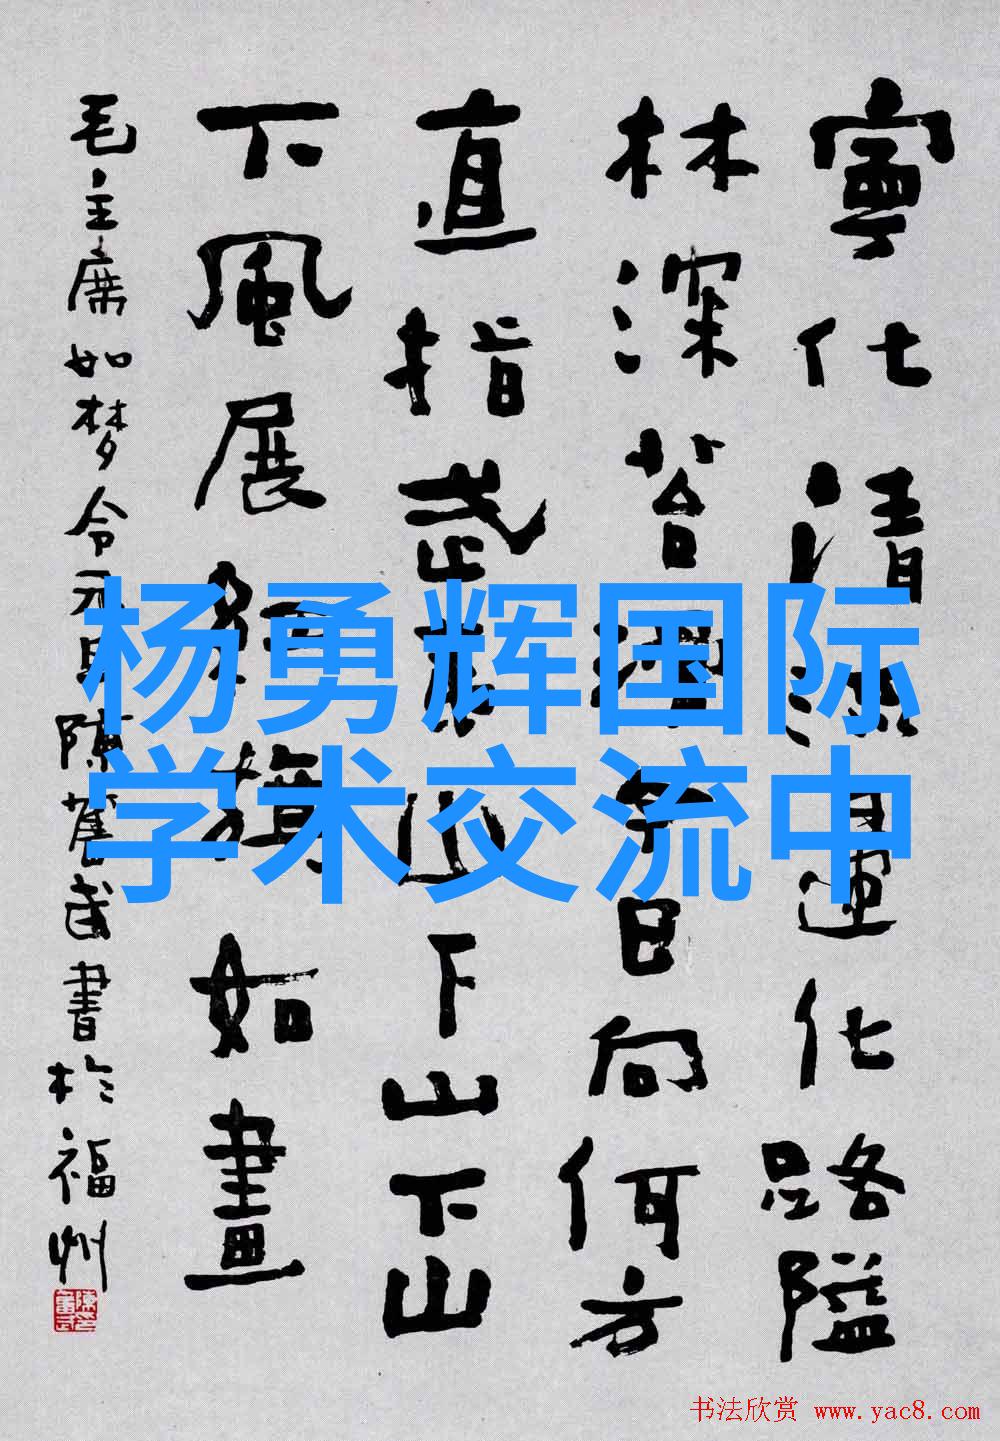 杨勇辉国际
学术交流中
寧化清流化路隘
林深苔滑今日向何方
直指武夷山下山下山
下風展紅旗如畫
毛主席如梦令元旦陳奮武書於福州
书法欣赏 www.yac8.com